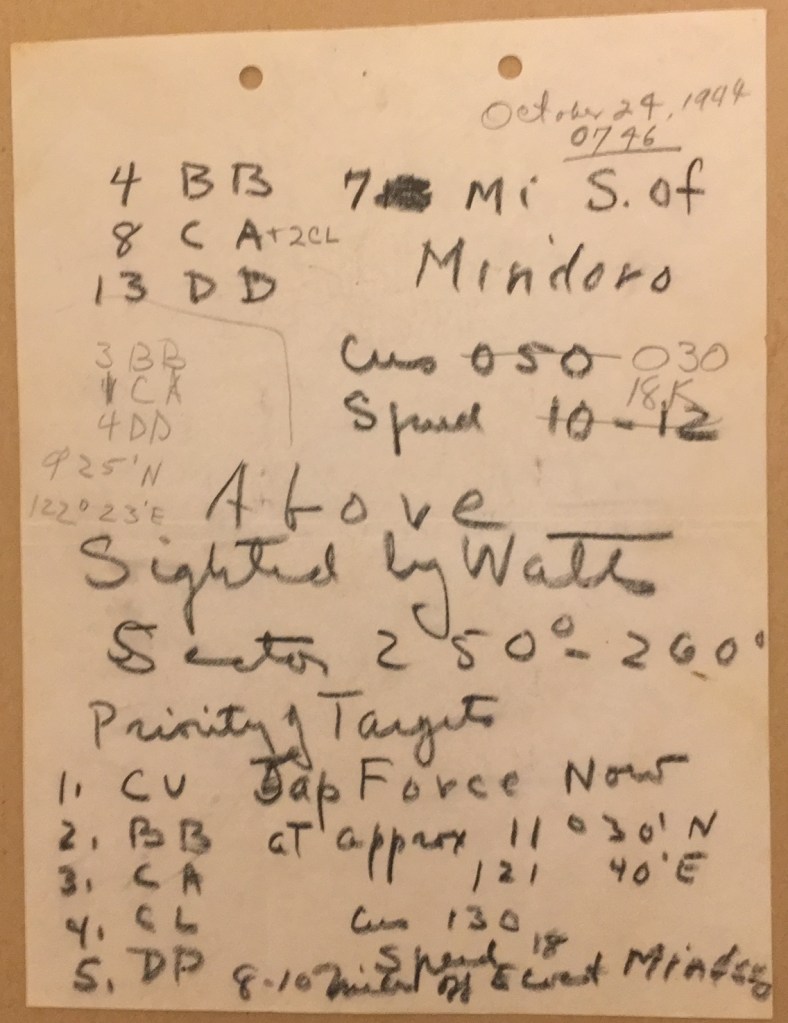 October 24, 1944
0746
4 BB 7 Mi S. of
8 CA + 2CL Mindoro
13 DD
3 BB Cus 050 030
1 CA 18K
4 DD Speed 10-12
9 25'N
122° 23'E Above
Sighted by Watts
Sector 250°-260°
Priority of Targets
1. CV Jap Force Now
2. BB at approx 11° 30' N
3. CA 121 40'E
4. CL Cus 130
5. DD Speed 18
8-10 miles off E coast Mindoro